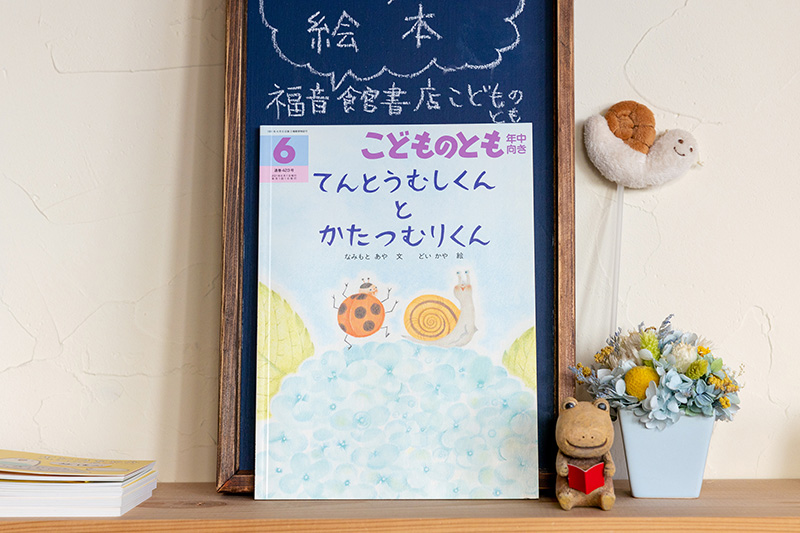 絵本
福音館書店こどもの
とも
6
こどものとも
年中
向き
てんとうむしくん
と
かたつむりくん
なみもと あや 文 どい かや 絵